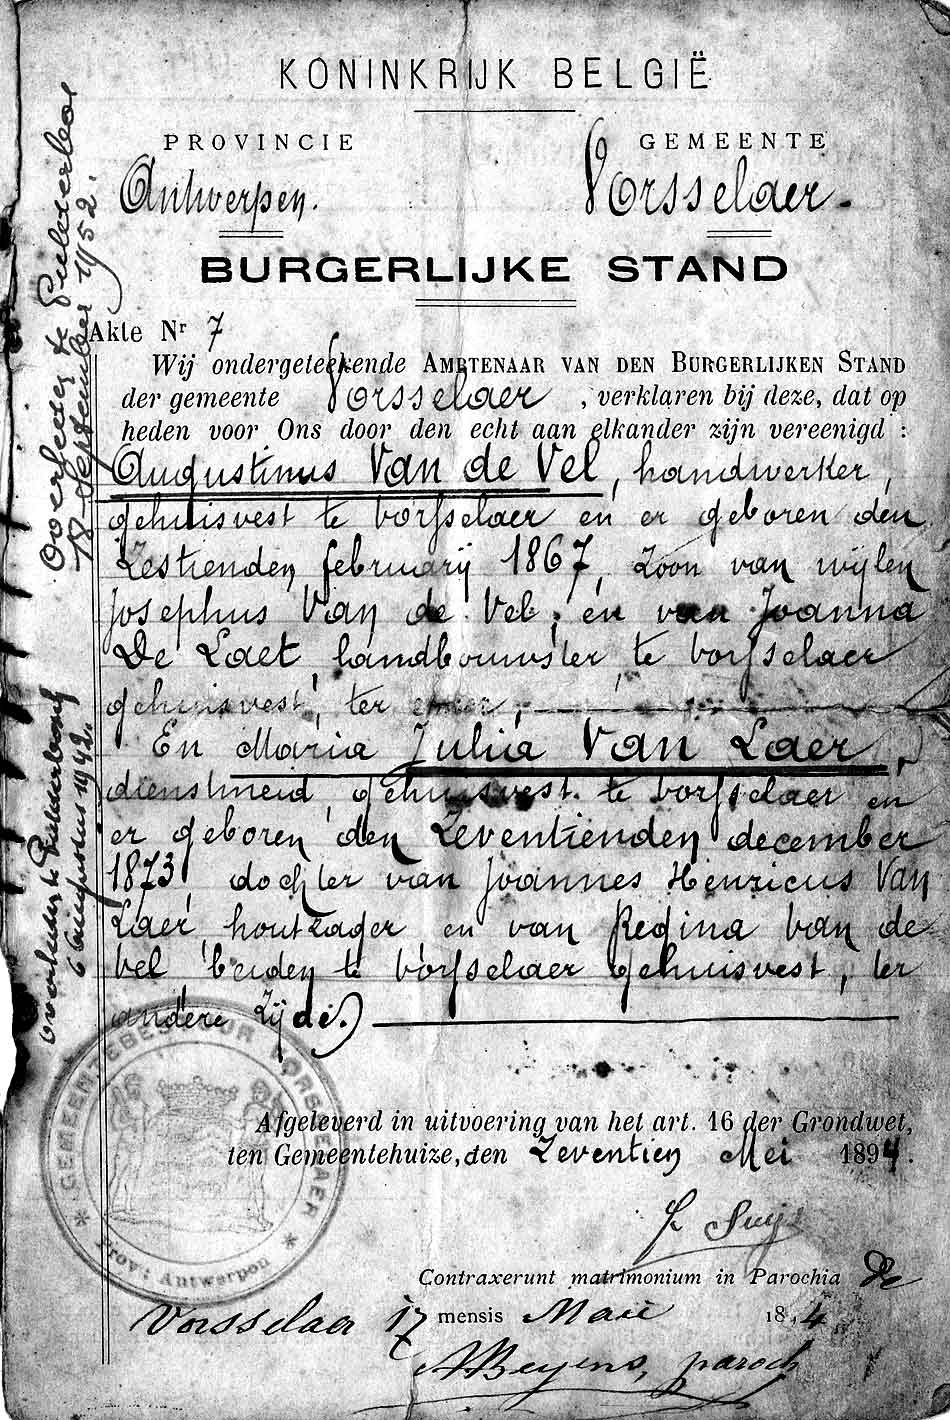 KONINKRIJK BELGIË
PROVINCIE
Antwerpen.
GEMEENTE
Vorsselaer.
BURGERLIJKE STAND
Akte Nr 7
Wij ondergeteekende AMBTENAAR VAN DEN BURGERLIJKEN STAND
der gemeente Vorsselaer, verklaren bij deze, dat op
heden voor Ons door den echt aan elkander zijn vereenigd :
Augustinus Van de Vel, handwerker,
gehuisvest te Vorsselaer en er geboren den
Zestienden februarij 1867, Zoon van wijlen
Josephus Van de Vel, en van Joanna
De Laet, landbouwster te Vorsselaer
gehuisvest, ter eener,
En Maria Julia Van Laer,
dienstmeid, gehuisvest te Vorsselaer en
er geboren den Zeventienden december
1873, dochter van Joannes Henricus Van
Laer, houtzager en van Regina Van de
Vel beiden te Vorsselaer gehuisvest, ter
andere Zijde.)
Afgeleverd in uitvoering van het art. 16 der Grondwet,
ten Gemeentehuize, den Zeventien Mei 1894.
Contraxerunt matrimonium in Parochia De
Vorsselaer 17 mensis Maii 1894
Beyens, paroch
GEMEENTEBESTUUR VORSSELAER
Prov: Antwerpen
Overleden te
18 September 1952.
Overleden te
6 Augustus 1942.